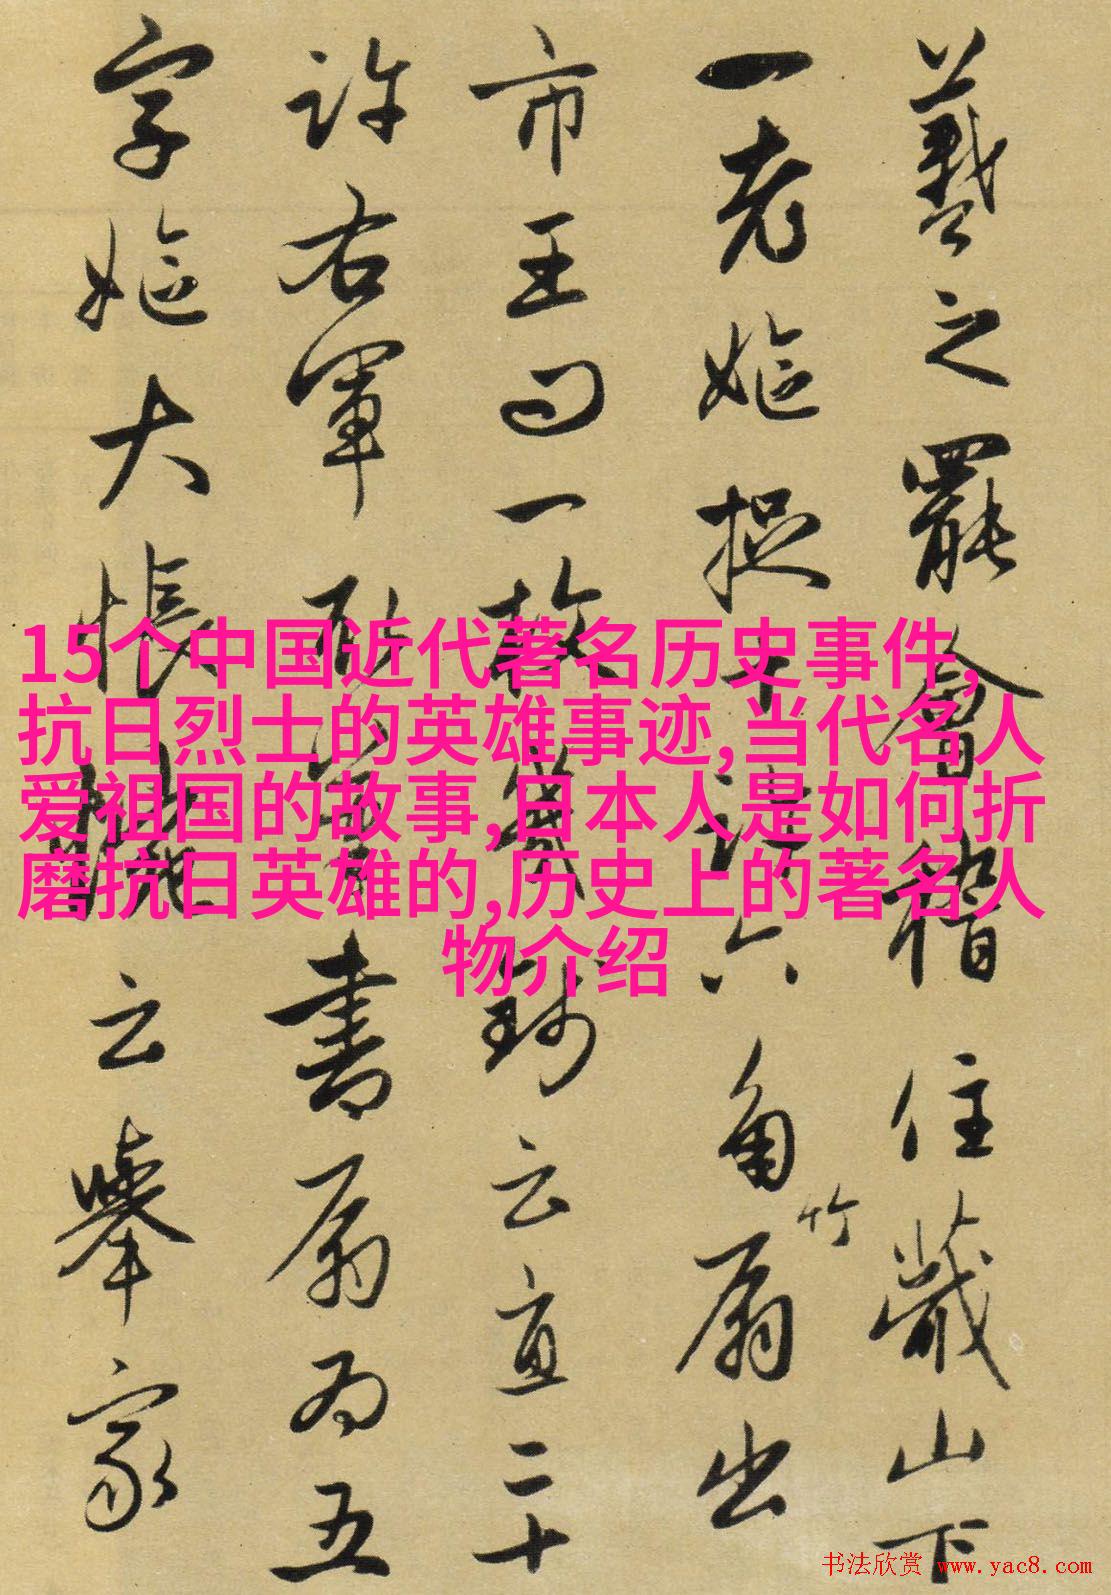 羲之罷會稽住蕺山下
一老嫗捉十許六角竹扇出
市王問一枚幾錢云直二十
許右軍取筆書扇為五
字嫗大悵惋云舉家
15个中国近代著名历史事件,
抗日烈士的英雄事迹,当代名人
爱祖国的故事,日本人是如何折
磨抗日英雄的,历史上的著名人
物介绍
书法欣赏 www.yac8.com